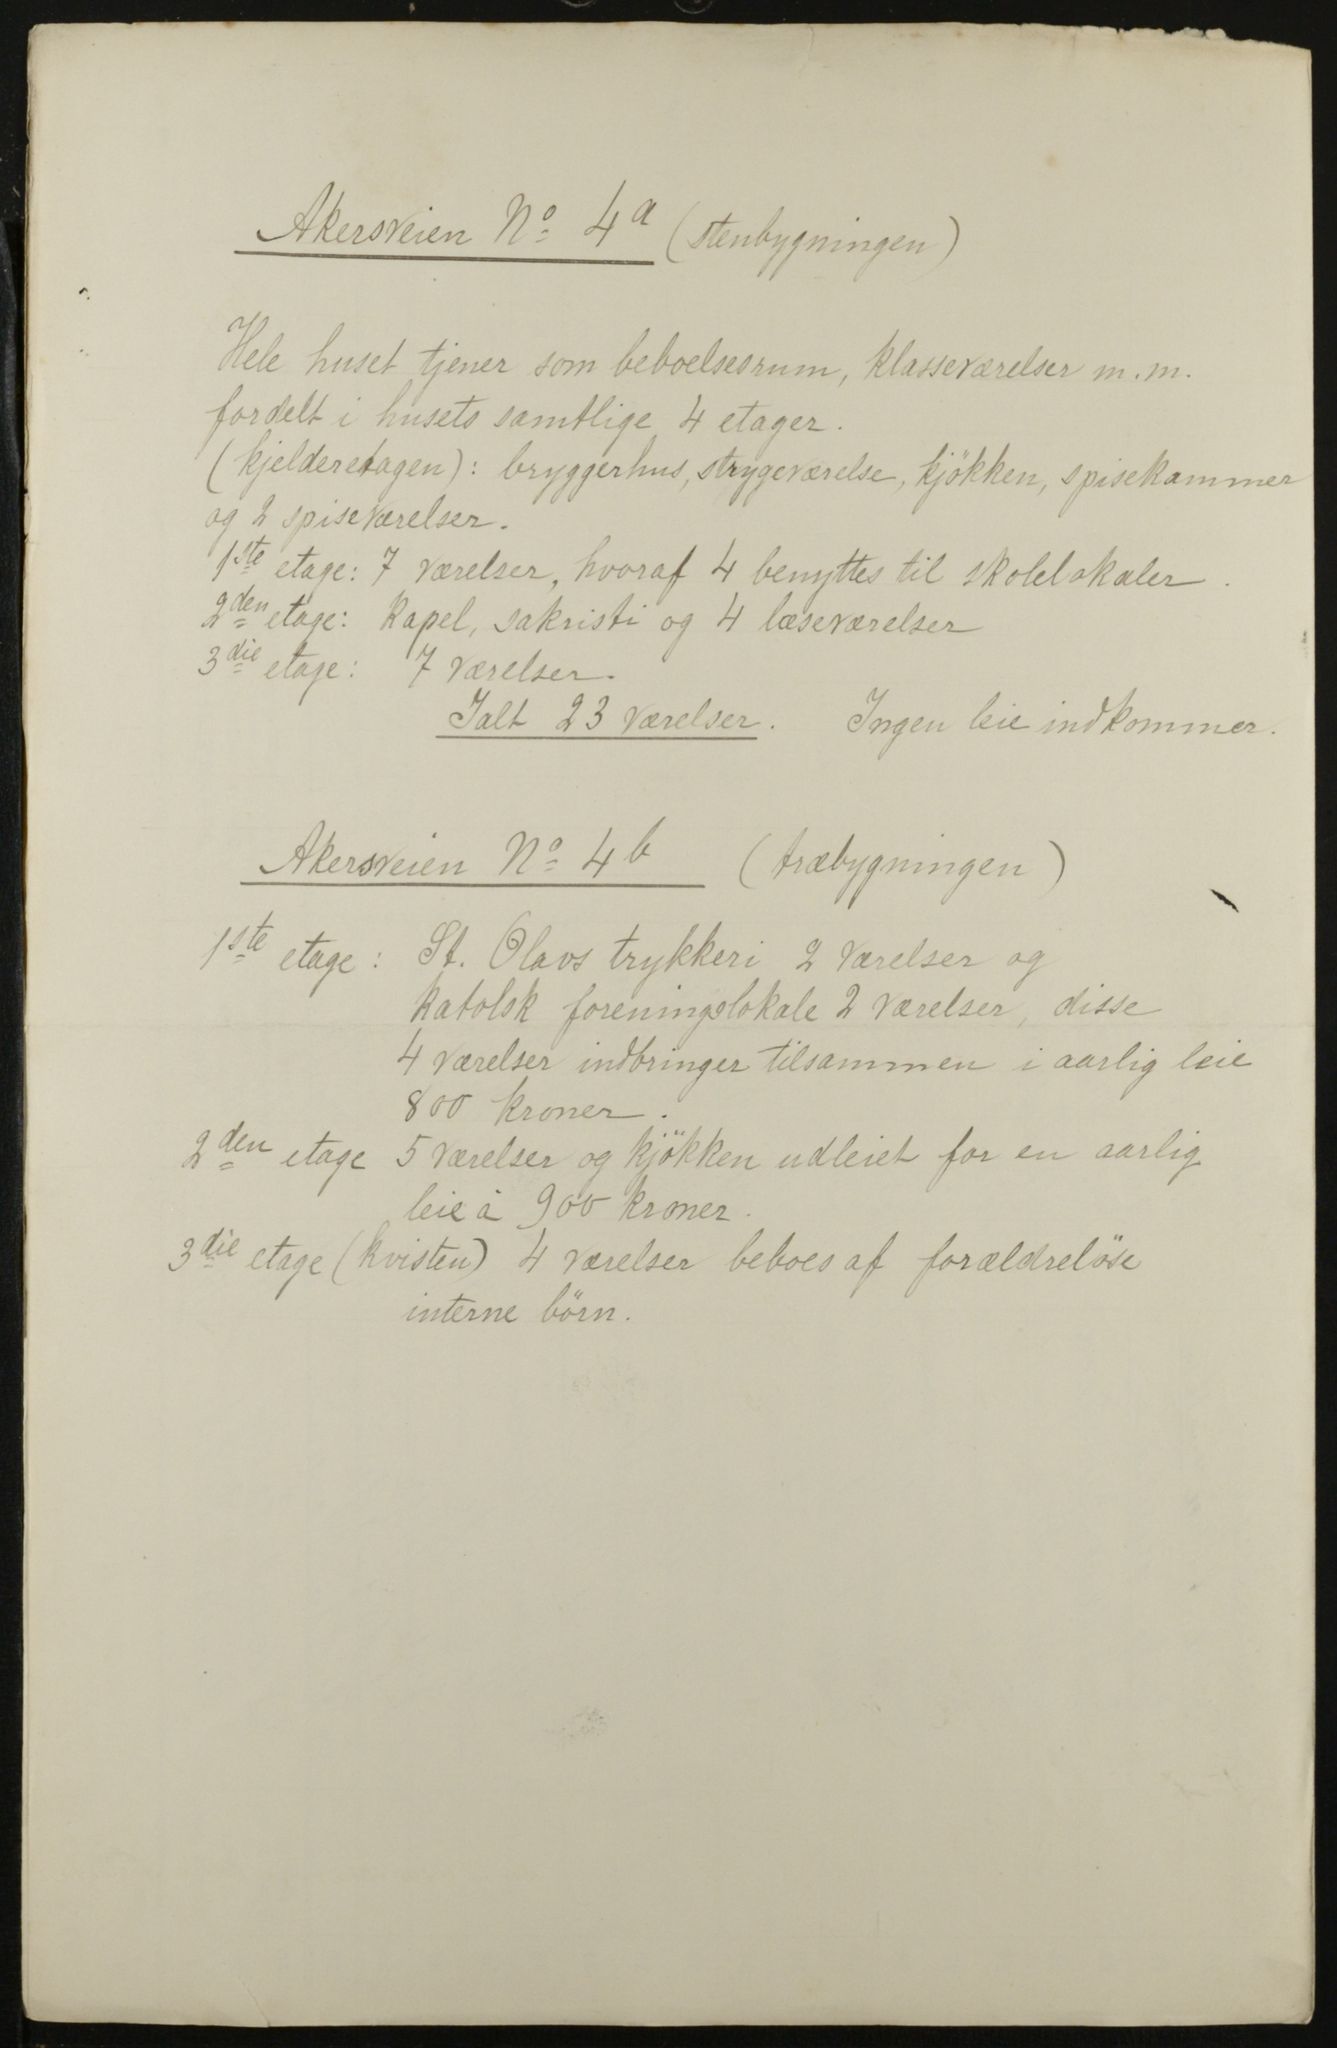 Akersveien No 4a (stenbygningen)
Hele huset tjener som beboelsesrum, klasseværelser m.m.
fordelt i husets samtlige 4 etager.
(kjelderetagen): bryggerhus, strygeværelse, kjökken, spisekammer
og 2 spiseværelser.
1ste etage: 7 værelser, hvoraf 4 benyttes til skolelokaler.
2den etage: kapel, sakristi og 4 læseværelser
3die etage: 7 værelser.
Ialt 23 værelser. Ingen leie indkommer.
Akersveien No 4b (træbygningen)
1ste etage: St. Olavs trykkeri 2 værelser og
katolsk foreningslokale 2 værelser, disse
4 værelser indbringer tilsammen i aarlig leie
800 kroner.
2den etage 5 værelser og kjökken udleiet for en aarlig
leie à 900 kroner.
3die etage (kvisten) 4 værelser beboes af forældrelöse
interne börn.